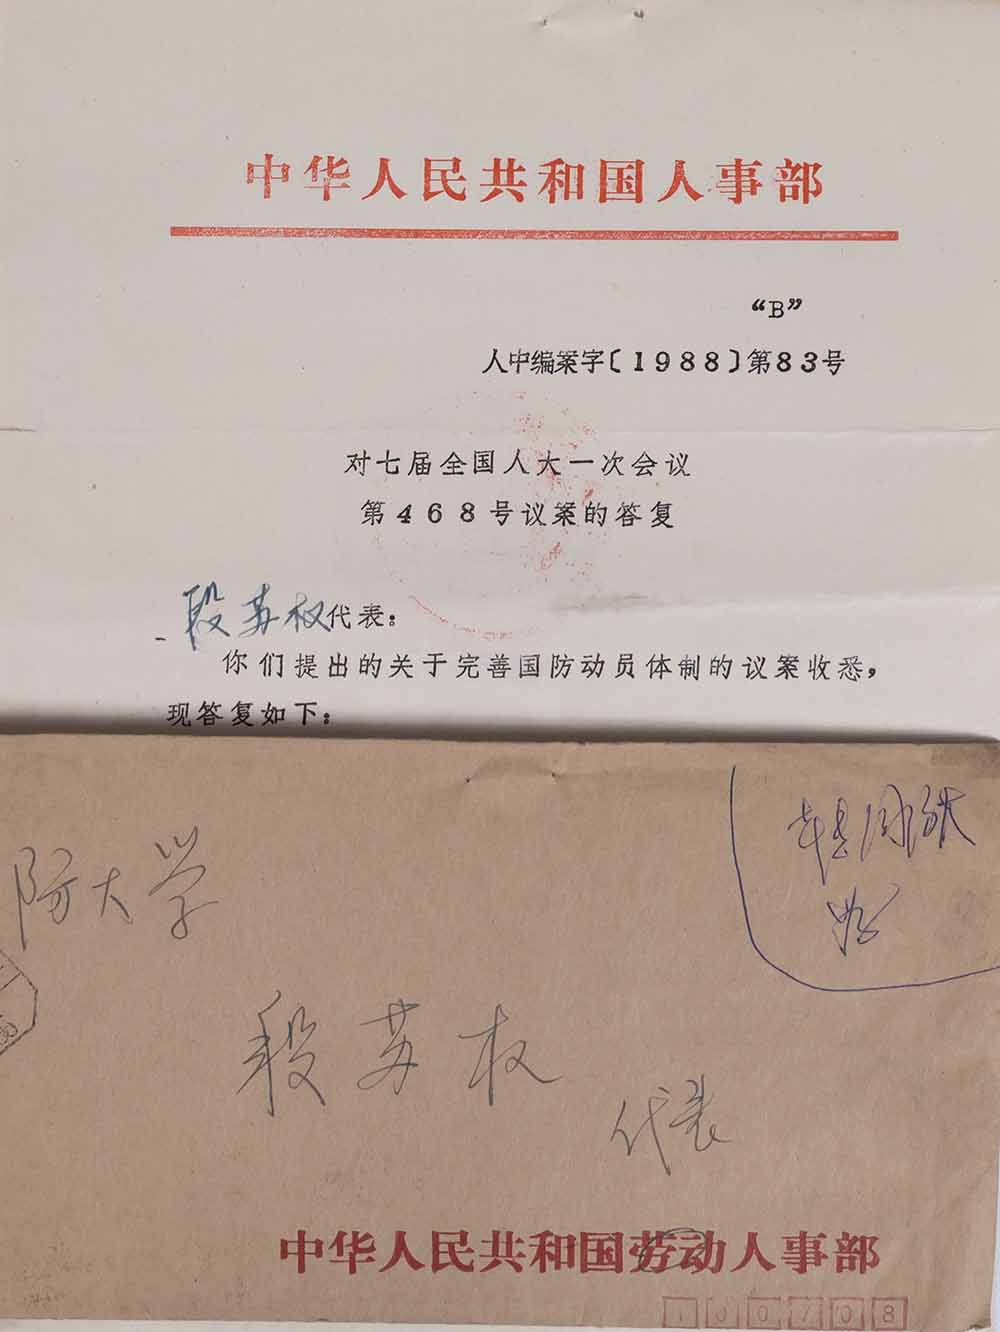 中华人民共和国人事部
“B”
人中编案字〔1988〕第83号
对七届全国人大一次会议
第468号议案的答复
段苏权代表：
你们提出的关于完善国防动员体制的议案收悉，
现答复如下：
防大学
段苏权
代表
中华人民共和国劳动人事部
100708